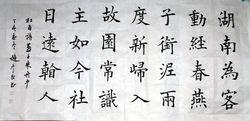 湖南為客
動經春燕
子銜泥兩
度新歸入
故園常識
主如今社
日遠翰人
杜甫詩燕子來舟中